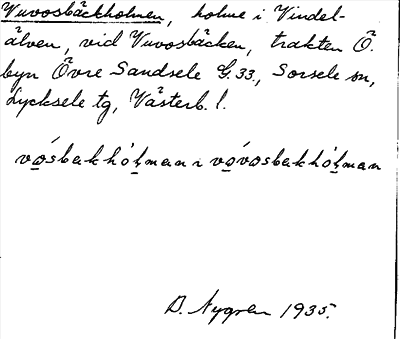 Vuvosbäckholmen, holme i Vindel-
älven, vid Vuvosbäcken, trakten Ö.
byn Övre Sandsele G. 33., Sorsele sn,
Lycksele tg, Västerb. l.
vo̲sbakhól̲man ı vo̲vosbakhól̲man
D. Nygren 1935.